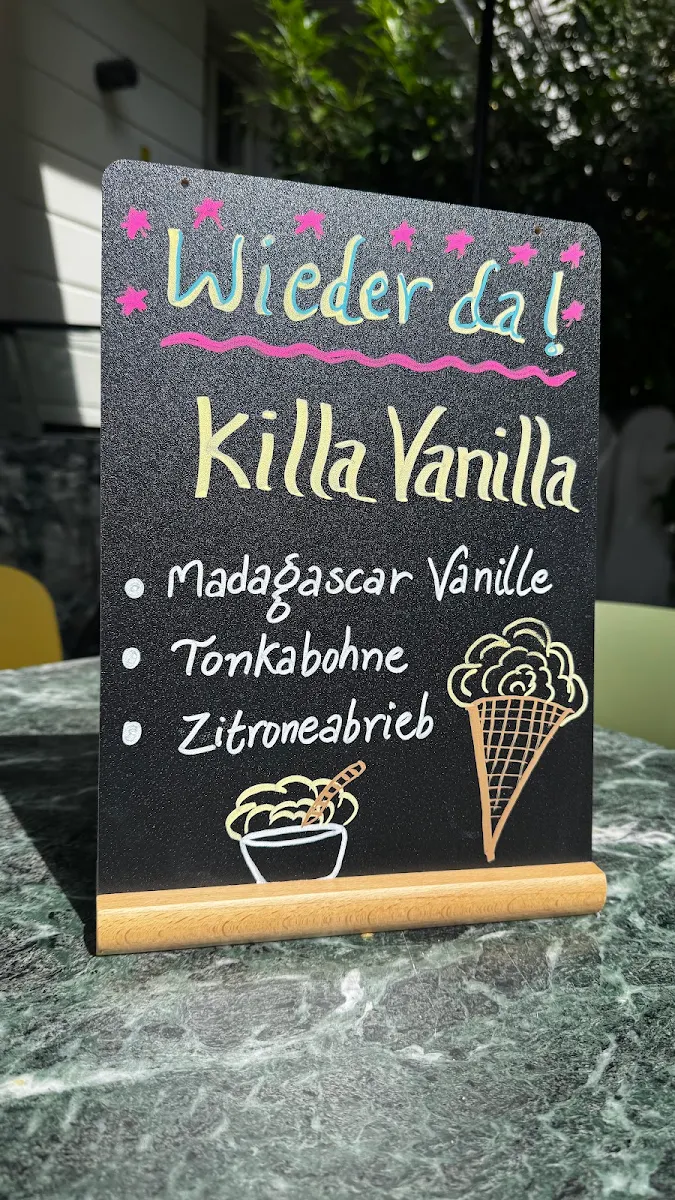 Wieder da!
Killa Vanilla
Madagascar Vanille
Tonkabohne
Zitroneabrieb